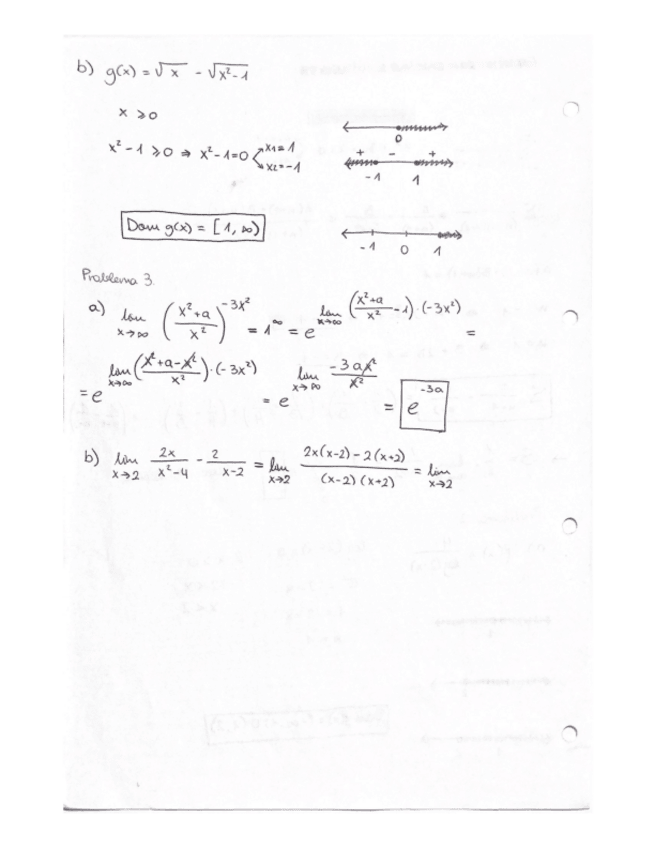 b) g(x) = √x - √x²-1
x ⩾ 0
0
x² - 1 ⩾ 0 ⇒ x² - 1 = 0 x1 = 1 x2 = -1
+ - +
-1 1
Dom g(x) = [1, ∞)
-1 0 1
Problema 3.
a) lím x→∞ (x²+a / x²)^-3x² = 1^∞ = e^lím x→∞ (x²+a / x² - 1)·(-3x²) =
= e^lím x→∞ (x²+a-x² / x²)·(-3x²) = e^lím x→∞ -3ax² / x² = e^-3a
b) lím x→2 2x / x²-4 - 2 / x-2 = lím x→2 2x(x-2) - 2(x+2) / (x-2)(x+2) = lím x→2